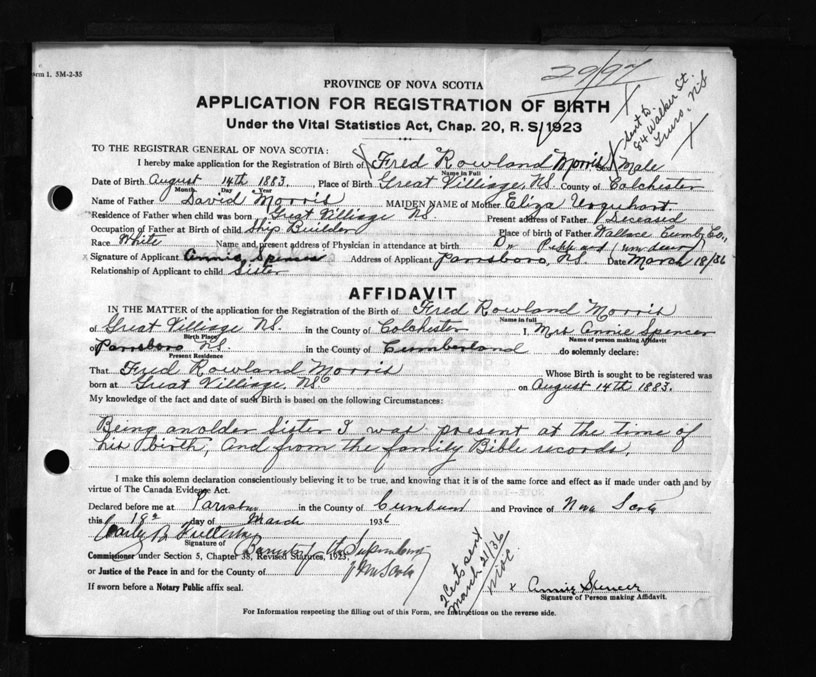 orm 1. 5M-2-35
29/97
PROVINCE OF NOVA SCOTIA
APPLICATION FOR REGISTRATION OF BIRTH
Under the Vital Statistics Act, Chap. 20, R. S. 1923
Sent to
84 Walker St.
Truro, NS
TO THE REGISTRAR GENERAL OF NOVA SCOTIA:
I hereby make application for the Registration of Birth of Fred Rowland Morris Sex Male
Name in Full
Date of Birth August 14th 1883. Place of Birth Great Villiage, NS. County of Colchester
Month Day Year
Name of Father David Morris MAIDEN NAME of Mother Eliza Urquhart.
Residence of Father when child was born Great Villiage NS. Present address of Father Deceased
Occupation of Father at Birth of child Ship Builder Place of birth of Father Wallace Cumb. Co.,
Race White Name and present address of Physician in attendance at birth Dr
Signature of Applicant Annie Spencer Address of Applicant Parrsboro, NS. Date March 18/36
Relationship of Applicant to child Sister
AFFIDAVIT
IN THE MATTER of the application for the Registration of the Birth of Fred Rowland Morris
Name in full
of Great Villiage NS. in the County of Colchester I, Mrs Annie Spencer
Birth Place Name of person making Affidavit
Parrsboro NS. in the County of Cumberland do solemnly declare:
Present Residence
That Fred Rowland Morris Whose Birth is sought to be registered was
born at Great Villiage, NS on August 14th 1883.
My knowledge of the fact and date of such Birth is based on the following Circumstances:
Being an older sister I was present at the time of
his birth, and from the family Bible records,
I make this solemn declaration conscientiously believing it to be true, and knowing that it is of the same force and effect as if made under oath and by
virtue of The Canada Evidence Act.
Declared before me at Parrsboro in the County of Cumberland and Province of Nova Scotia
this 19th day of March 1936
Signature of
Commissioner under Section 5, Chapter 38, Revised Statutes, 1923, Barrister of the Supreme Court
or Justice of the Peace in and for the County of of Nova Scotia
If sworn before a Notary Public affix seal.
2 Certs sent
March 21/36
x Annie Spencer
Signature of Person making Affidavit.
For Information respecting the filling out of this Form, see Instructions on the reverse side.